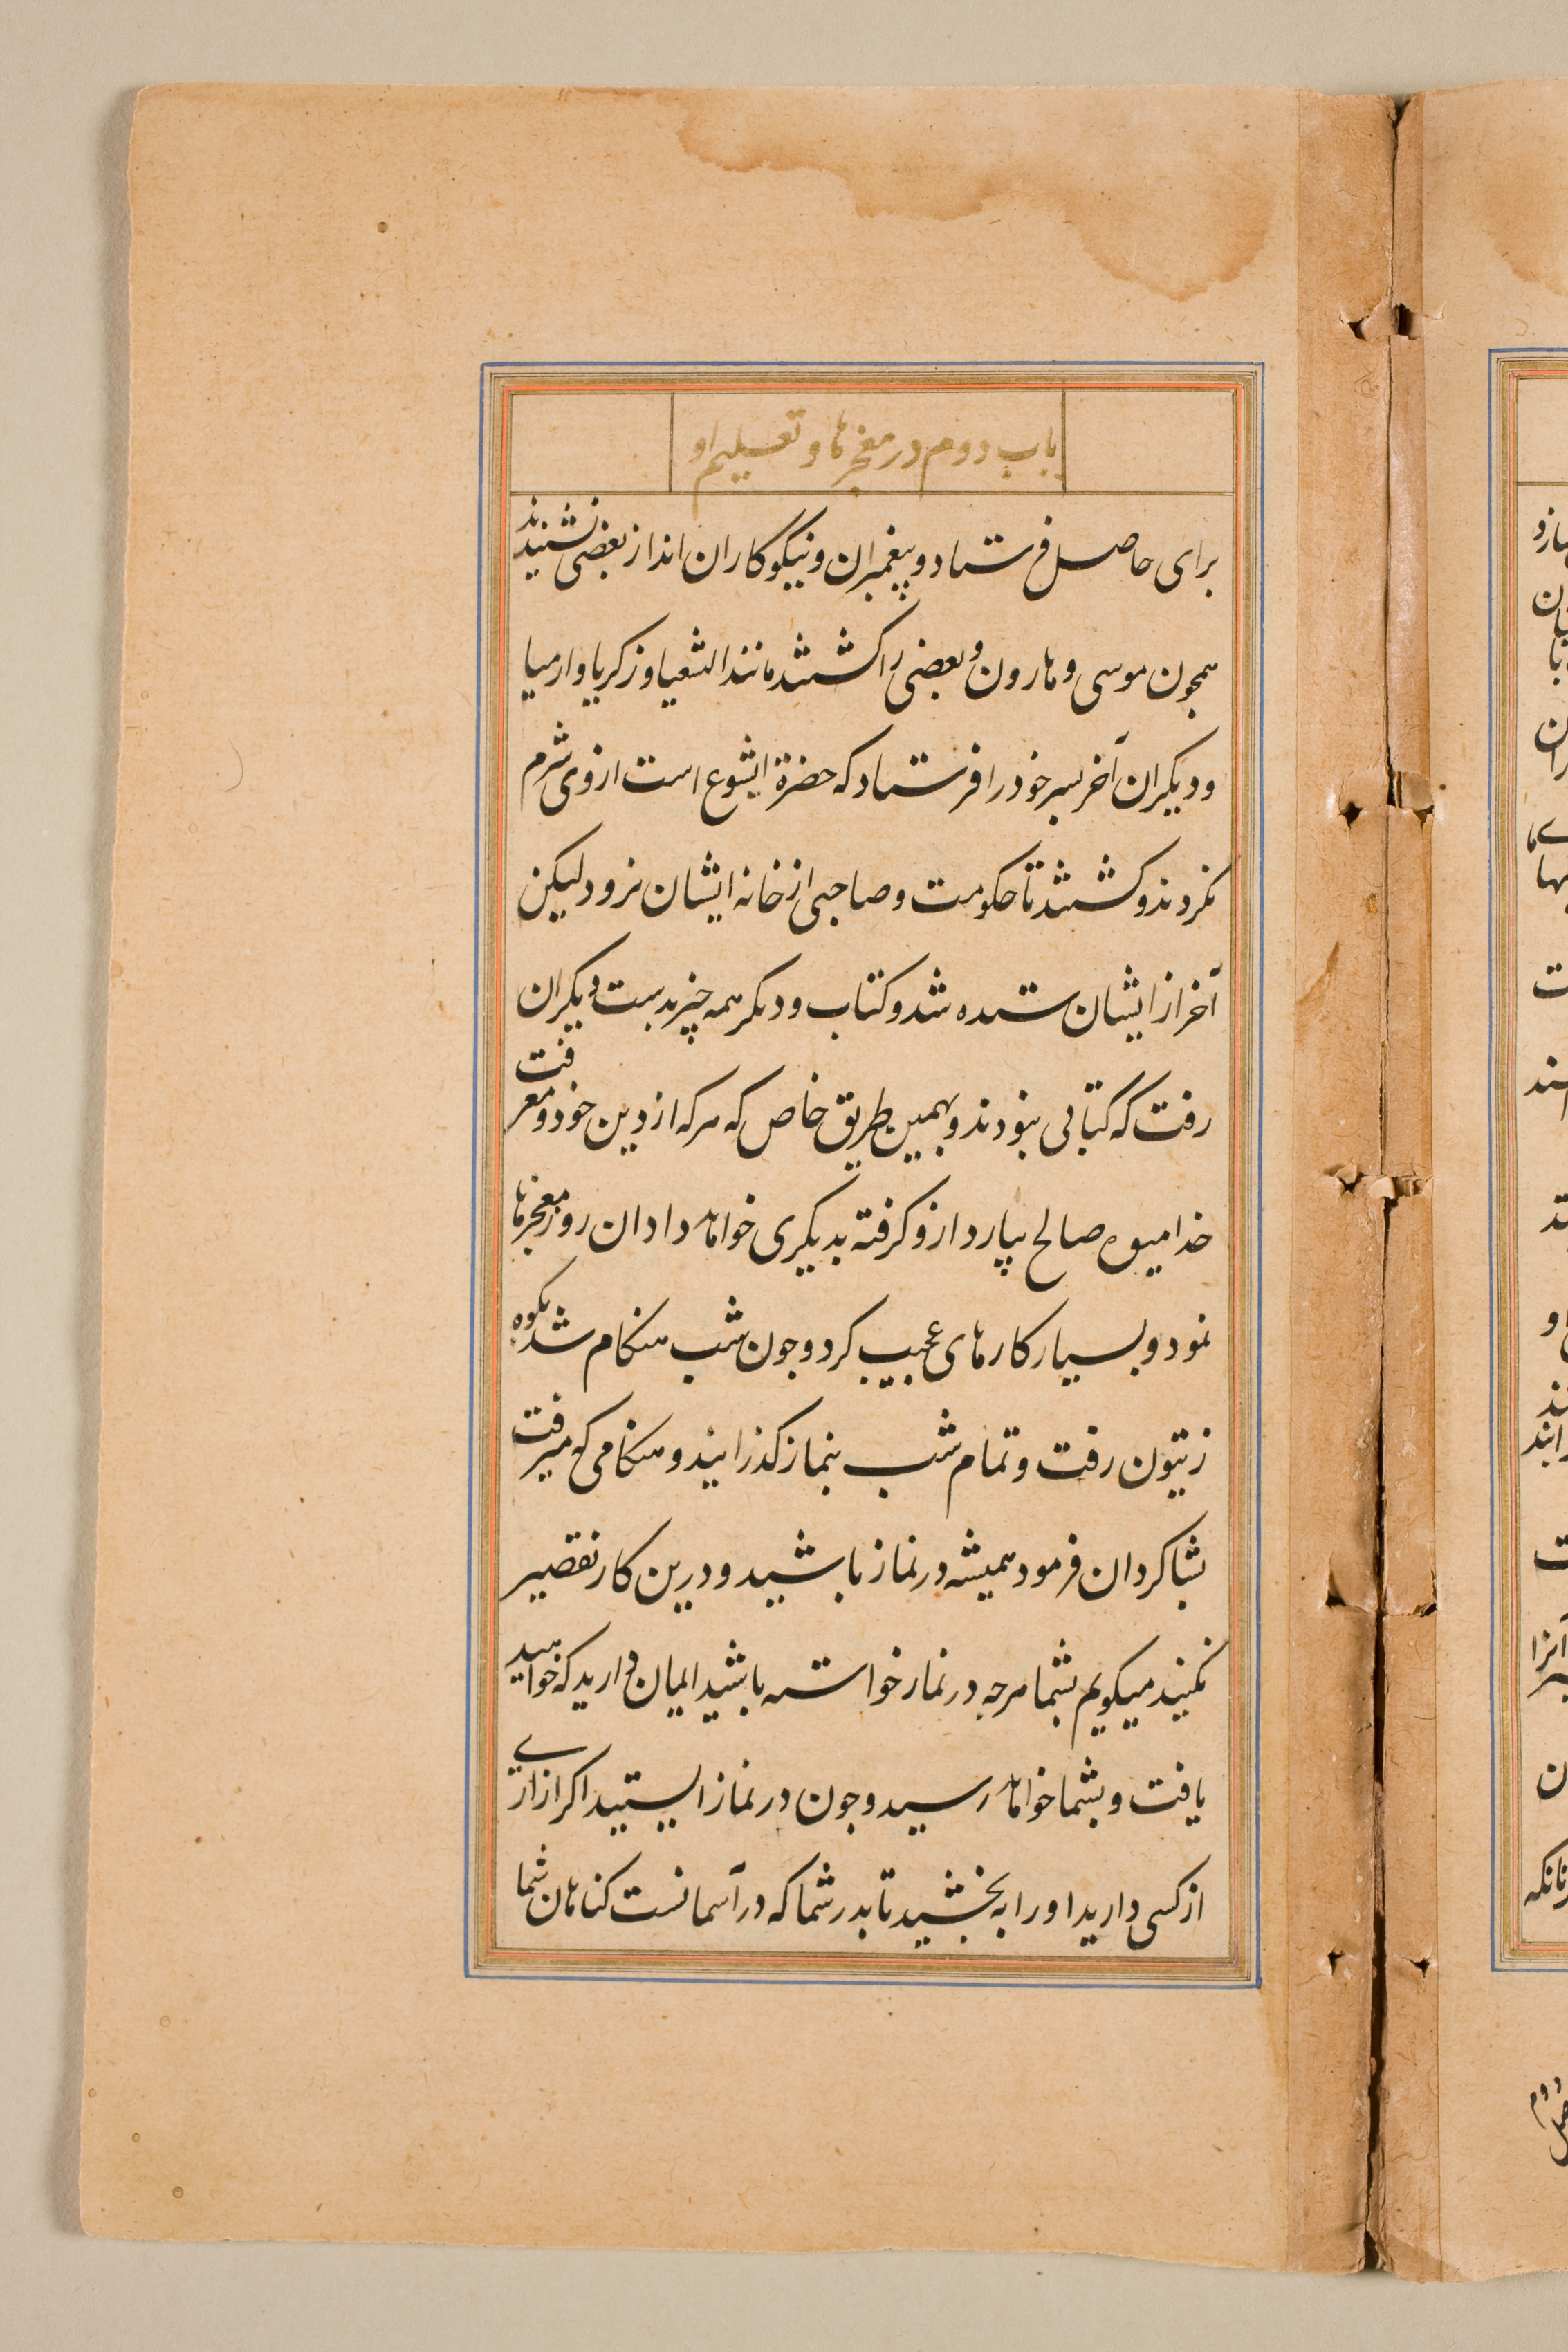 باب دوم در معجزها و تعلیم او
برای حاصل فرستاد و پیغمبران و نیکوکاران اند از بعضی نشنیدند
همجون موسی و هارون و بعضی را کشتند مانند اشعیا و زکریا و ارمیا
و دیکران آخر بسر خود را فرستاد که حضرة ایشوع است ازوی شرم
نکردند و کشتند تا حکومت و صاحبی از خانه ایشان نرود لیکن
آخر از ایشان ستده شد و کتاب و دیکر همه چیز بدست دیکران
رفت که کتابی نبودند و بهمین طریق خاص که هرکه از دین خود و معرفت
خدا میوه صالح نیارد ازو کرفته بدیکری خواهد داد ان روز معجزها
نمود و بسیار کارهای عجیب کرد و جون شب هنکام شد بکوه
زیتون رفت و تمام شب بنماز کذرانید و هنکامی که میرفت
بشاکردان فرمود همیشه در نماز باشید و درین کار تقصیر
نکنید میکویم بشما هرجه در نماز خواسته باشید ایمان دارید که خواهید
یافت و بشما خواهد رسید و جون در نماز ایستید اکر ازاری
از کسی دارید اورا به بخشید تا بدر شما که در آسمانست کناهان شما